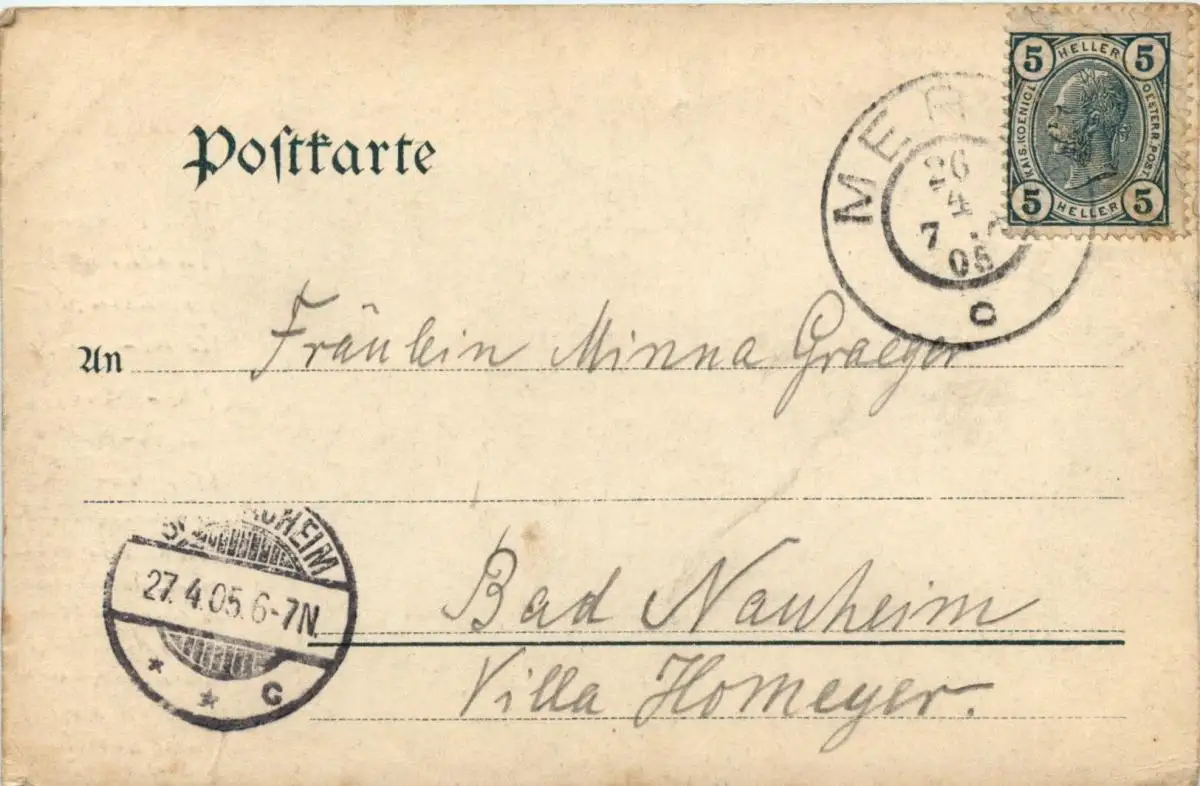 Postkarte
5 HELLER 5
KAIS. KOENIGL. OESTERR. POST
5 HELLER 5
26
4
7
05
c
An Fräulein Minna Graeger
27.4.05.6-7N.
* * C
Bad Nauheim
Villa Homeyer.